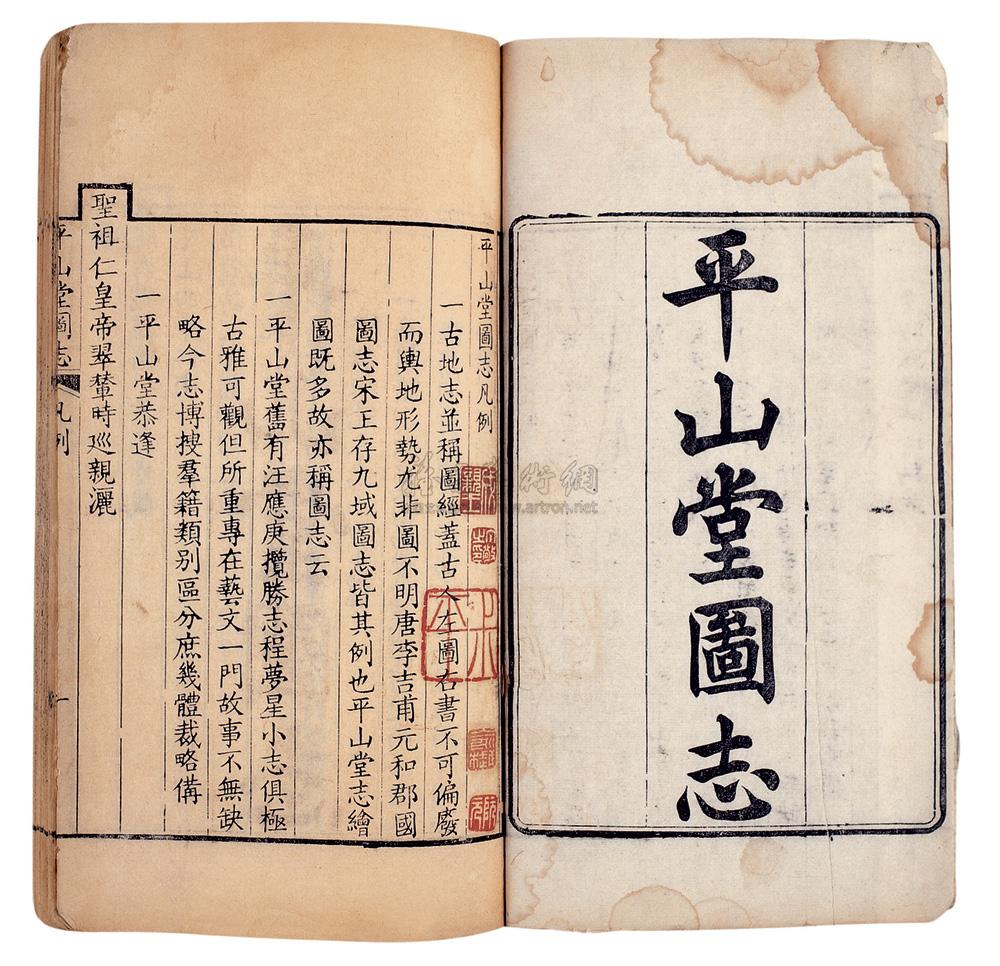 平山堂圖志
平山堂圖志凡例
一古地志並稱圖經蓋古人左圖右書不可偏廢
而輿地形勢尤非圖不明唐李吉甫元和郡國
圖志宋王存九域圖志皆其例也平山堂志繪
圖既多故亦稱圖志云
一平山堂舊有汪應庚攬勝志程夢星小志俱極
古雅可觀但所重專在藝文一門故事不無缺
略今志博搜羣籍類別區分庶幾體裁略備
一平山堂恭逢
聖祖仁皇帝翠輦時廵親灑
平山堂圖志 凡例 一
術網
www.artron.net